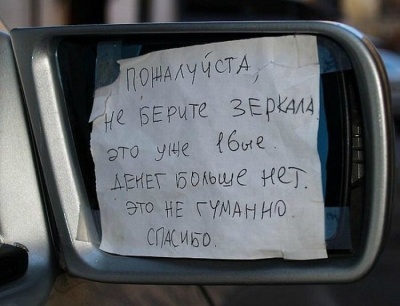 ПОЖАЛУЙСТА,
НЕ БЕРИТЕ ЗЕРКАЛА.
ЭТО УЖЕ 16ые.
ДЕНЕГ БОЛЬШЕ НЕТ.
ЭТО НЕ ГУМАННО.
СПАСИБО.